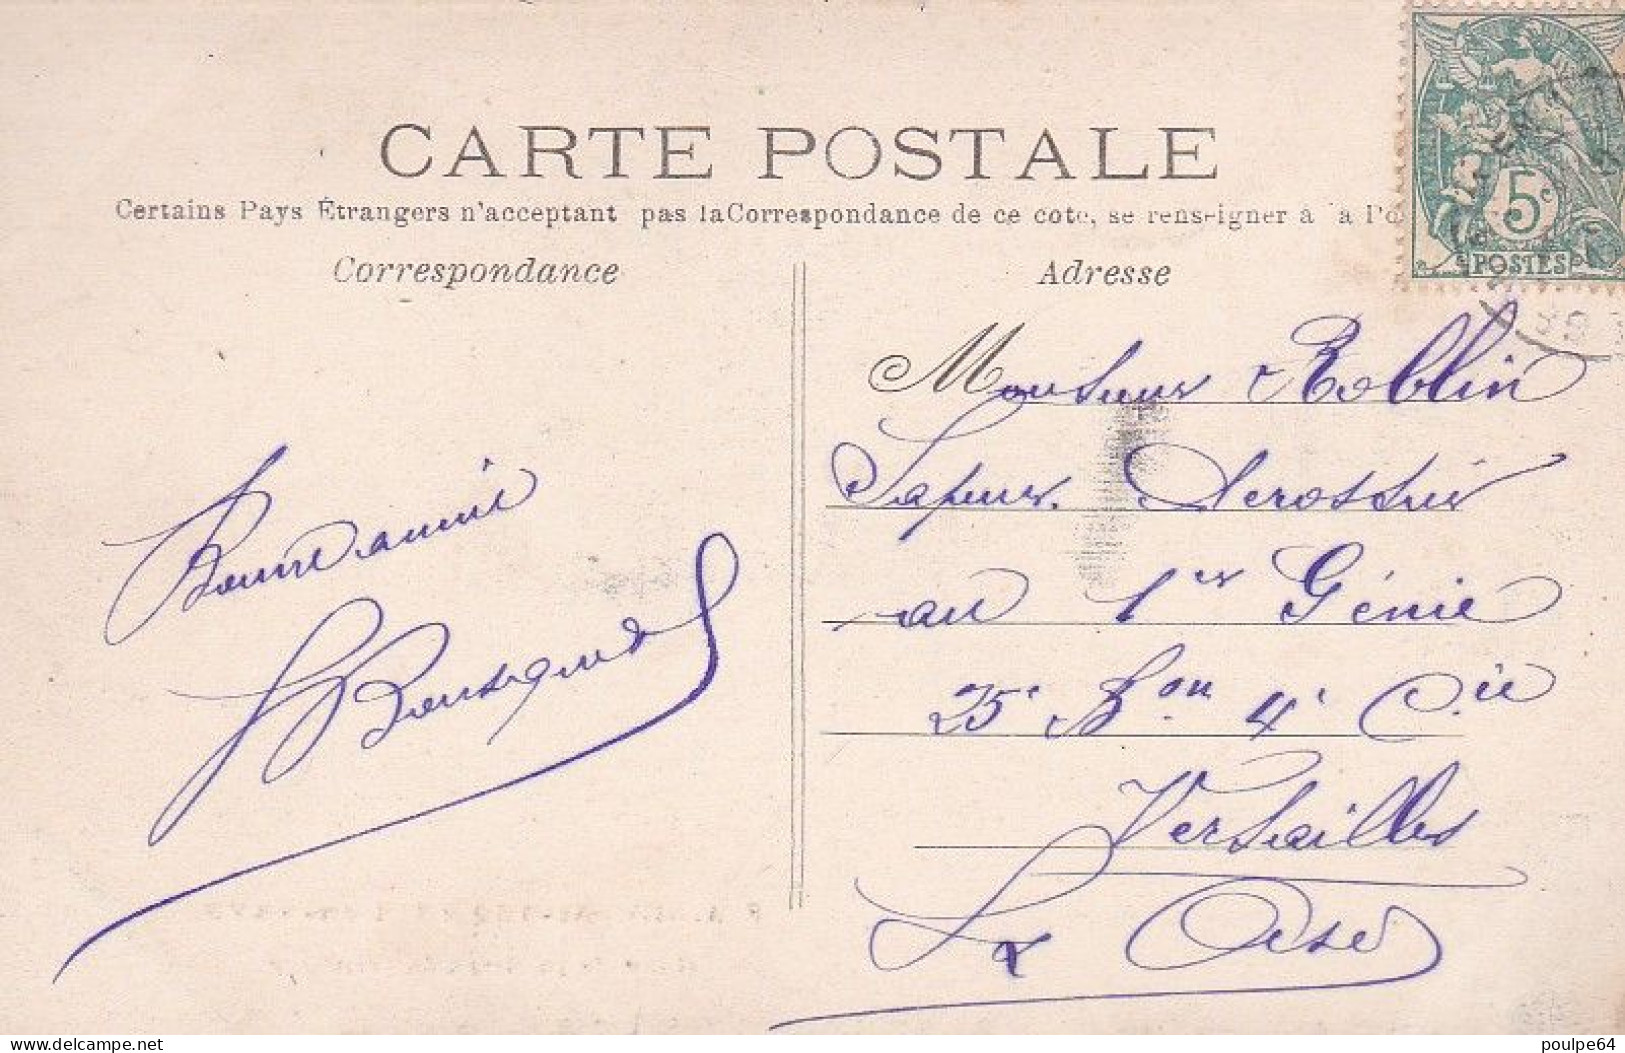 CARTE POSTALE
Certains Pays Étrangers n'acceptant pas la Correspondance de ce cote, se renseigner à la
Correspondance
Adresse
5c
POSTES
Monsieur Roblin
Sapeur Aérostier
au 1er Génie
25e Bon 4e Cie
Versailles
S. & Oise
Bonne amitié
Bousquet
delcampe.net
poulpe64